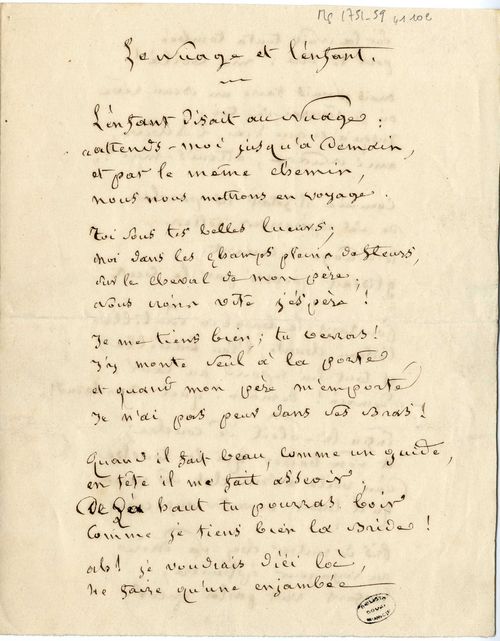 Ms 1751-59
Le Nuage et l'enfant.
L'enfant disait au Nuage :
attends-moi jusqu'à demain,
et par le même chemin,
nous nous mettrons en voyage.
Toi sous tes belles lueurs,
moi dans les champs pleins de fleurs,
sur le cheval de mon père,
nous irons vite j'espère !
Je me tiens bien, tu verras !
J'y monte seul à la porte,
et quand mon père m'emporte
Je n'ai pas peur dans ses bras !
Quand il fait beau, comme un guide,
en tête il me fait asseoir ;
De là haut tu pourras voir
Comme je tiens bien la bride !
ah ! je voudrais d'ici là,
Ne faire qu'une enjambée